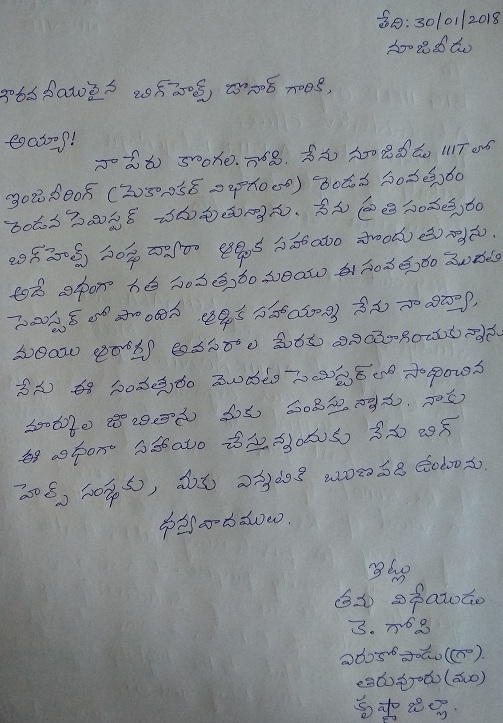 తేది: 30/01/2018
నూజివీడు
గౌరవనీయులైన బిగ్‌హెల్ప్ డోనార్ గారికి,
అయ్యా!
నా పేరు కొంగల. గోపి. నేను నూజివీడు IIIT లో
ఇంజనీరింగ్ (మెకానికల్ విభాగంలో) రెండవ సంవత్సరం
రెండవ సెమిస్టర్ చదువుతున్నాను. నేను ప్రతి సంవత్సరం
బిగ్‌హెల్ప్ సంస్థ ద్వారా ఆర్థిక సహాయం పొందుతున్నాను.
అదే విధంగా గత సంవత్సరం మరియు ఈ సంవత్సరం మొదటి
సెమిస్టర్ లో పొందిన ఆర్థిక సహాయాన్ని నేను నా విద్యా,
మరియు ఆరోగ్య అవసరాల మేరకు వినియోగించుకున్నాను
నేను ఈ సంవత్సరం మొదటి సెమిస్టర్ లో సాధించిన
మార్కుల జాబితాను మీకు పంపిస్తున్నాను. నాకు
ఈ విధంగా సహాయం చేస్తున్నందుకు నేను బిగ్
హెల్ప్ సంస్థకు, మీకు ఎన్నటికి ఋణపడి ఉంటాను.
ధన్యవాదములు.
ఇట్లు
తమ విధేయుడు
కె. గోపి
ఎరుకోపాడు(గ్రా).
తిరువూరు(మం)
కృష్ణాజిల్లా.